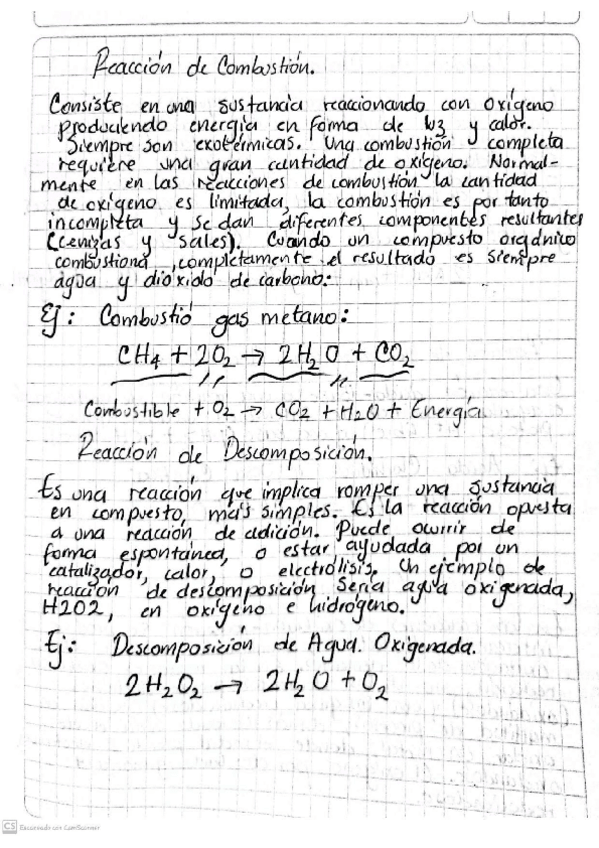 Reacción de Combustión.
Consiste en una sustancia reaccionando con Oxígeno
produciendo energía en forma de luz y calor.
Siempre son exotérmicas. Una combustión completa
requiere una gran cantidad de oxígeno. Normal-
mente, en las reacciones de combustión la cantidad
de oxígeno es limitada, la combustión es por tanto
incompleta y se dan diferentes componentes resultantes
(cenizas y sales). Cuando un compuesto orgánico
combustiona completamente el resultado es siempre
agua y dióxido de carbono:
Ej: Combustió gas metano:
CH4 + 2O2 → 2H2O + CO2
Combustible + O2 → CO2 + H2O + Energía
Reacción de Descomposición.
Es una reacción que implica romper una sustancia
en compuesto, más simples. Es la reacción opuesta
a una reacción de adición. Puede ocurrir de
forma espontánea, o estar ayudada por un
catalizador, calor, o electrólisis. Un ejemplo de
reacción de descomposición Sería agua oxigenada,
H2O2, en oxígeno e hidrógeno.
Ej: Descomposición de Agua. Oxigenada.
2H2O2 → 2H2O + O2
CS Escaneado con CamScanner